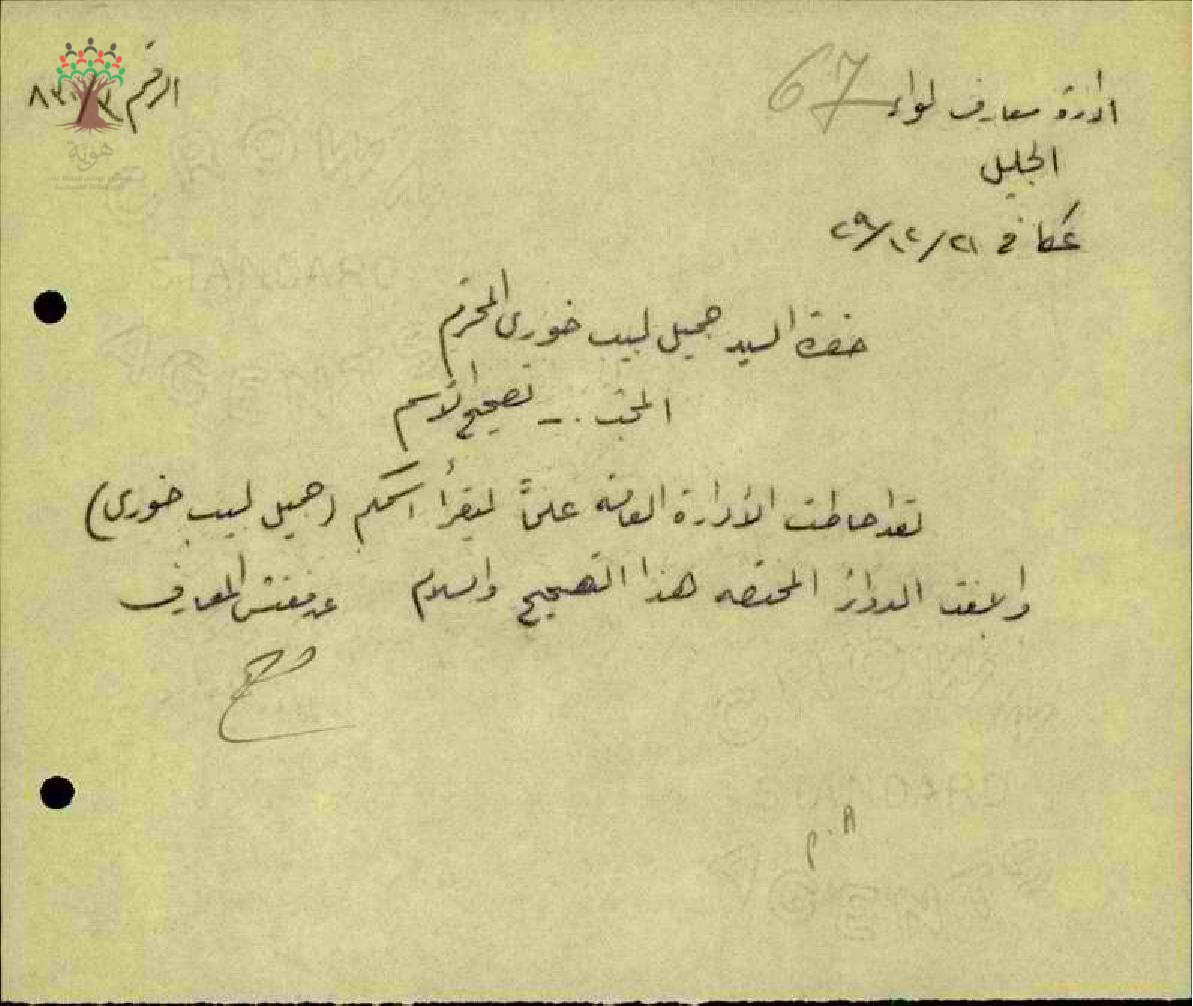 ادارة معارف لواء 67
الرقم
الجليل
هوية
عكا في ٢١/١٢/٢٩
حضرة السيد جميل لبيب خوري المحترم
المبحث :- تصحيح الاسم
لقد احاطت الأدارة العامة علماً ليقرأ اسمكم (جميل لبيب خوري)
وابلغت الدوائر المختصه هذا التصحيح والسلام عن مفتش المعارف